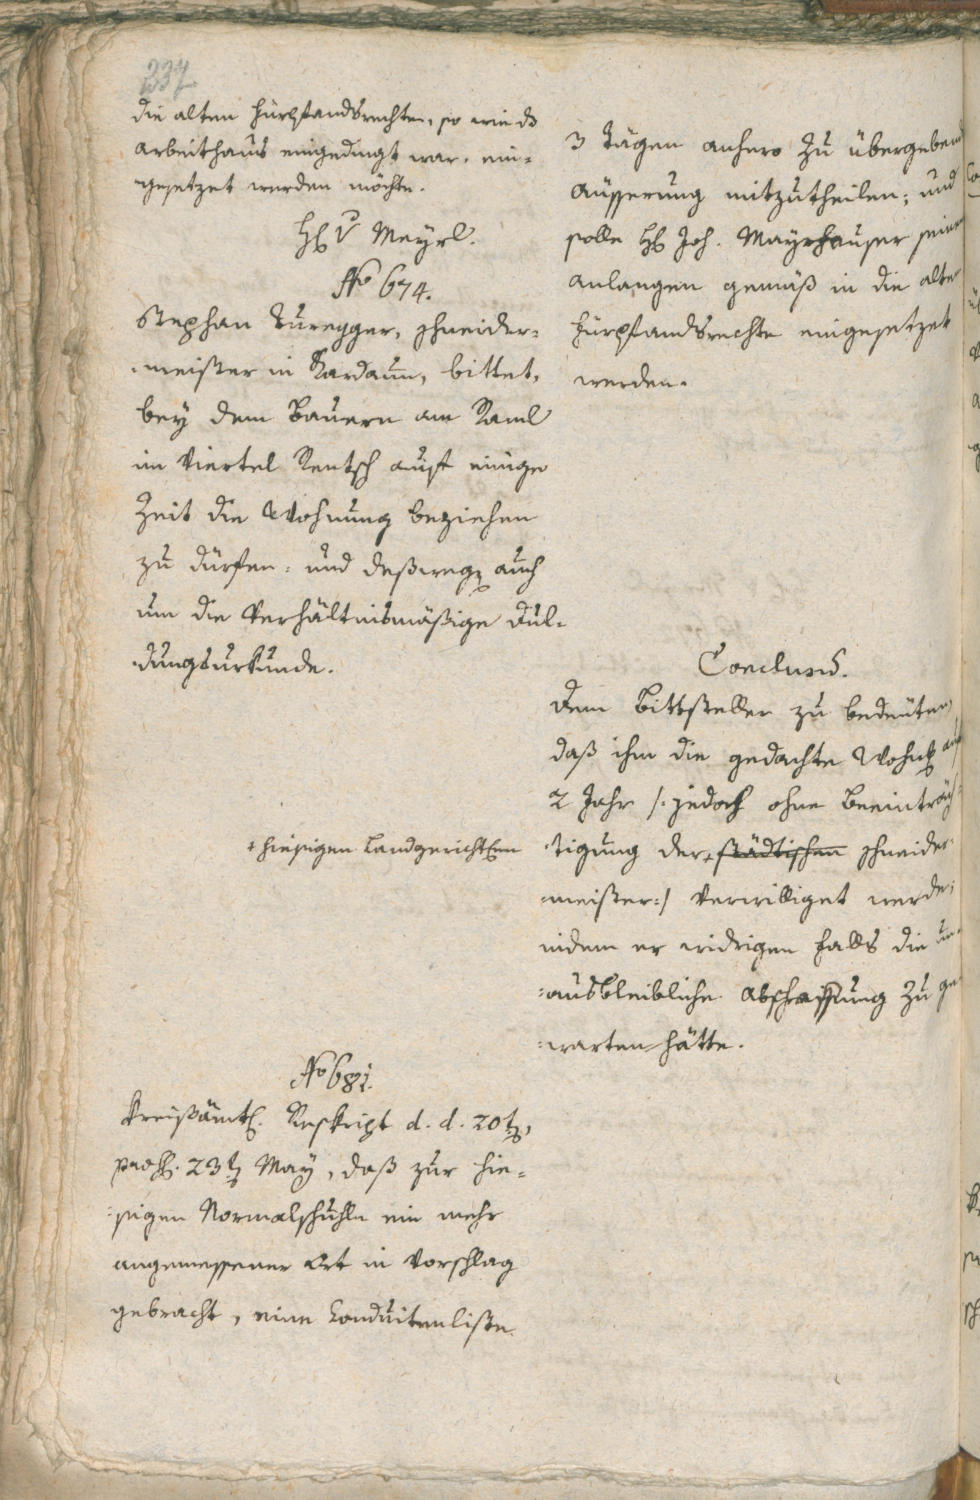 237
die alten Fürstandsrechten, so wie das
Arbeithaus eingedingt war, ein-
gesetzet werden möchte.
H. v. Meyrl.
No 674.
Stephan Turegger, Schneider-
meister in Kardaun, bittet,
bey dem Bauern am Raml
im Viertel Rentsch auf einige
Zeit die Wohnung beziehen
zu dürfen: und deßwegen auch
um die Verhältnismäßige Dul-
dungsurkunde.
+ hiesigen Landgerichtlichen
No 681.
Kreißämtl. Reskript d. d. 20t,
praes. 23t May, daß zur hie-
sigen Normalschuhle ein mehr
angemessener Ort in Vorschlag
gebracht, eine Conduitenliste
3 Tägen anhero zu übergeben
Äusserung mitzutheilen; und
solle H. Joh. Mayrhauser seinem
Anlangen gemäß in die alte
Fürstandsrechte eingesetzet
werden.
Conclusus.
Dem Bittsteller zu bedeuten,
daß ihm die gedachte Wohng auf
2 Jahr /: jedoch ohne Beeinträch-
tigung der + städtischen Schneider-
meister :/ Verwilliget werde;
indem er widrigen Falls die un-
ausbleibliche Abschaffung zu ge-
warten hätte.